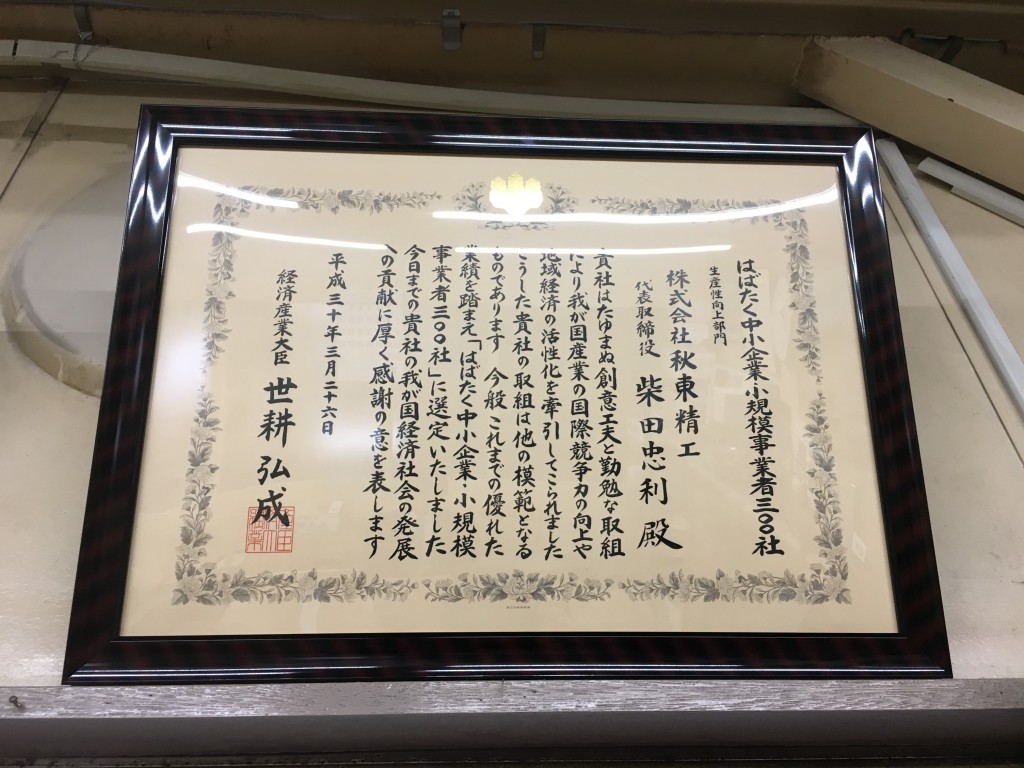 はばたく中小企業小規模事業者三〇〇社
生産性向上部門
株式会社秋東精工
代表取締役 柴田忠利 殿
貴社はたゆまぬ創意工夫と勤勉な取組
により我が国産業の国際競争力の向上や
地域経済の活性化を牽引してこられました
こうした貴社の取組は他の模範となる
ものであります 今般 これまでの優れた
業績を踏まえ「はばたく中小企業・小規模
事業者三〇〇社」に選定いたしました
今日までの貴社の我が国経済社会の発展
への貢献に厚く感謝の意を表します
平成三十年三月二十六日
経済産業大臣 世耕弘成